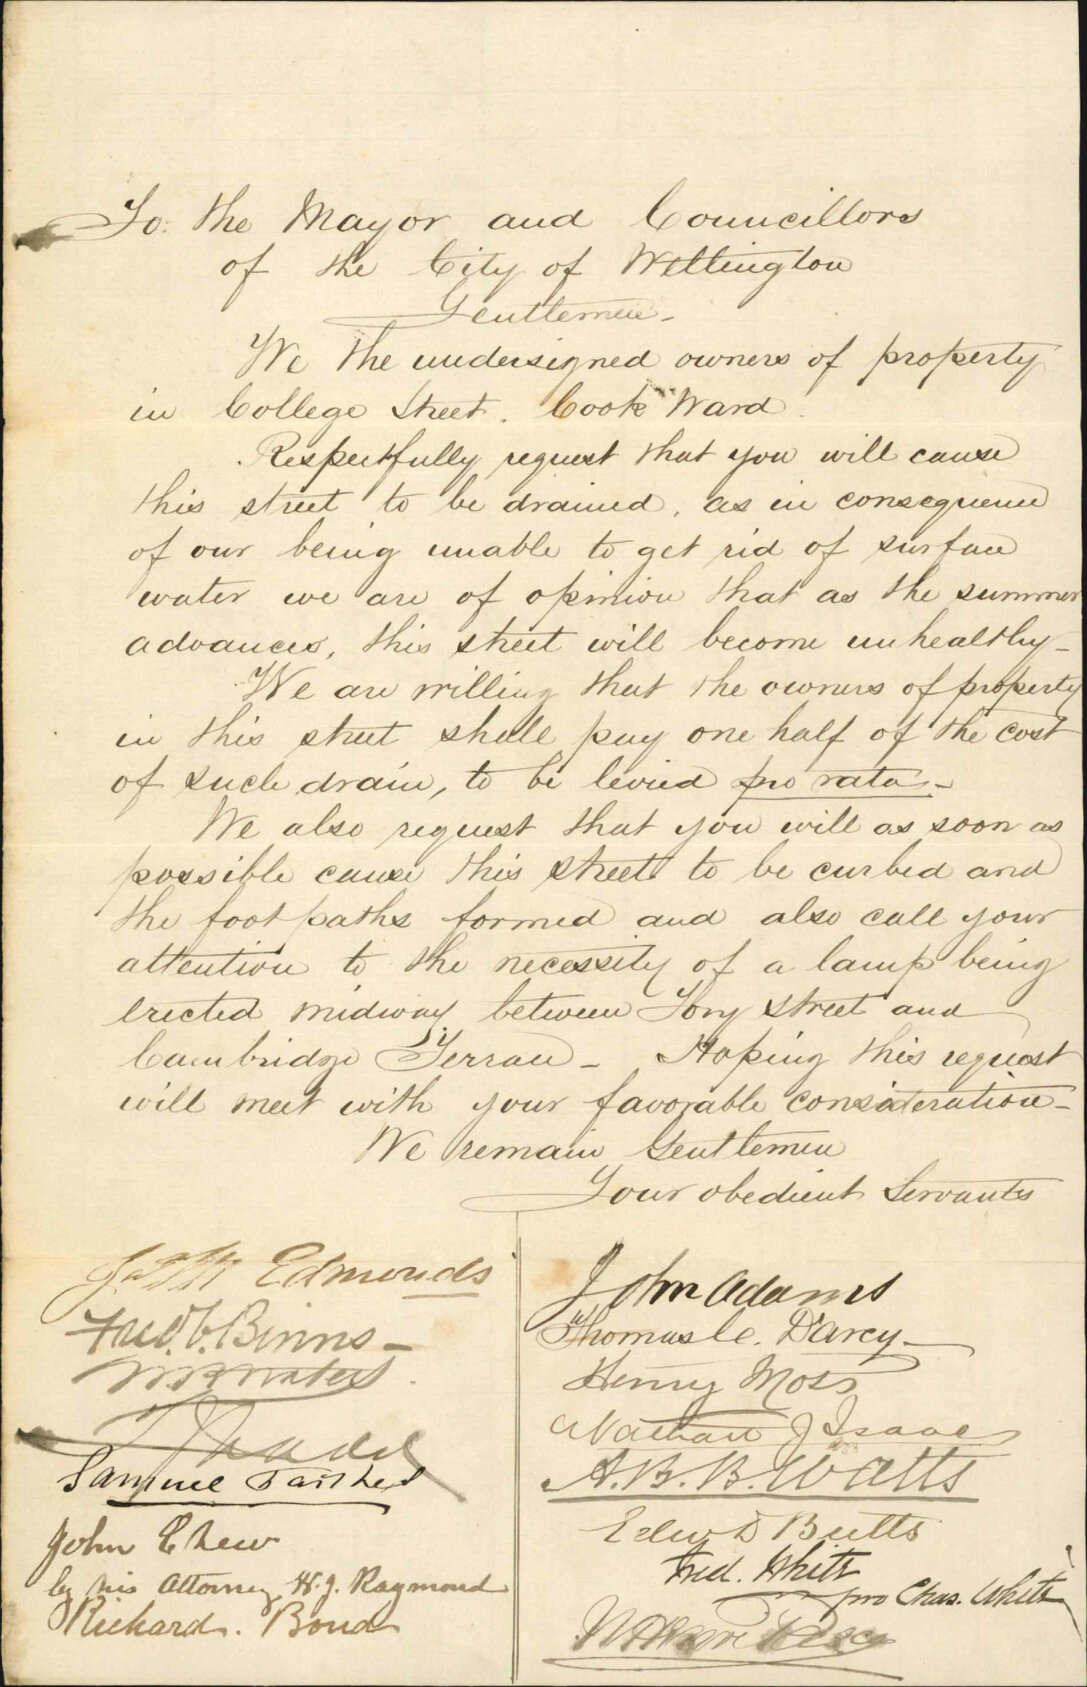 To. the Mayor and Councillors
of the City of Wellington
Gentlemen -
We the undersigned owners of property
in College Street. Cook Ward.
Respectfully request that you will cause
this street to be drained, as in consequence
of our being unable to get rid of surface
water we are of opinion that as the summer
advances, this street will become unhealthy -
We are willing that the owners of property
in this street shall pay one half of the cost
of such drain, to be levied pro rata -
We also request that you will as soon as
possible cause this street to be curbed and
the footpaths formed and also call your
attention to the necessity of a lamp being
erected midway between Tory Street and
Cambridge Terrace - Hoping this request
will meet with your favorable consideration -
We remain Gentlemen
Your obedient Servants
Edmonds
Binns -
Samuel
John Chew
by his Attorney H. J. Raymond
Richard. Bond
John Adams
Thomas C. D'Arcy -
Henry Moss
Nathan J Isaacs
A. B. B. Watts
Edwd Butts
Fred. White
pro Chas. White